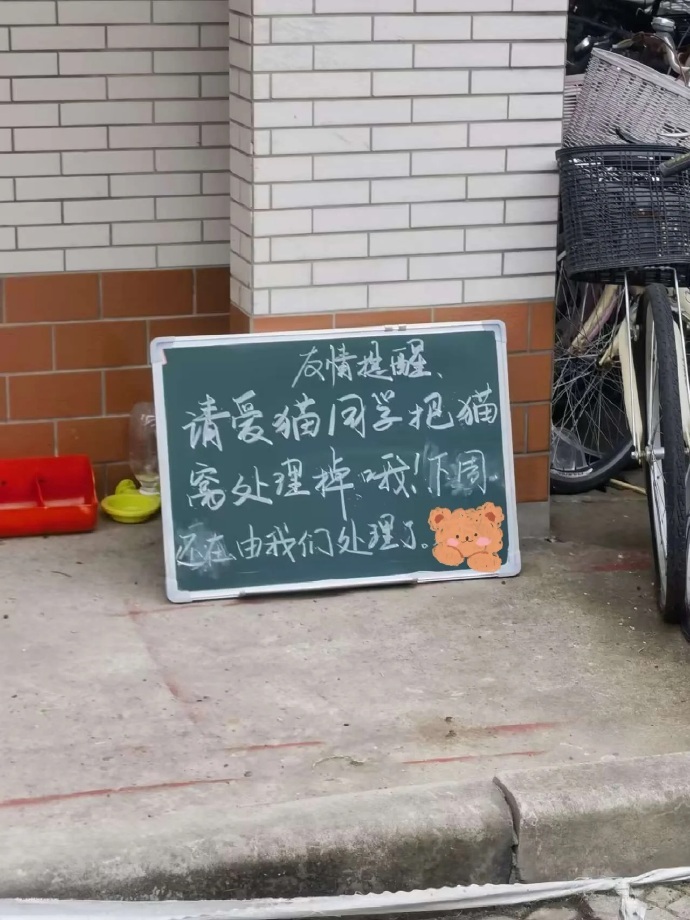 友情提醒、
请爱猫同学把猫
窝处理掉哦!下周
还在由我们处理了。